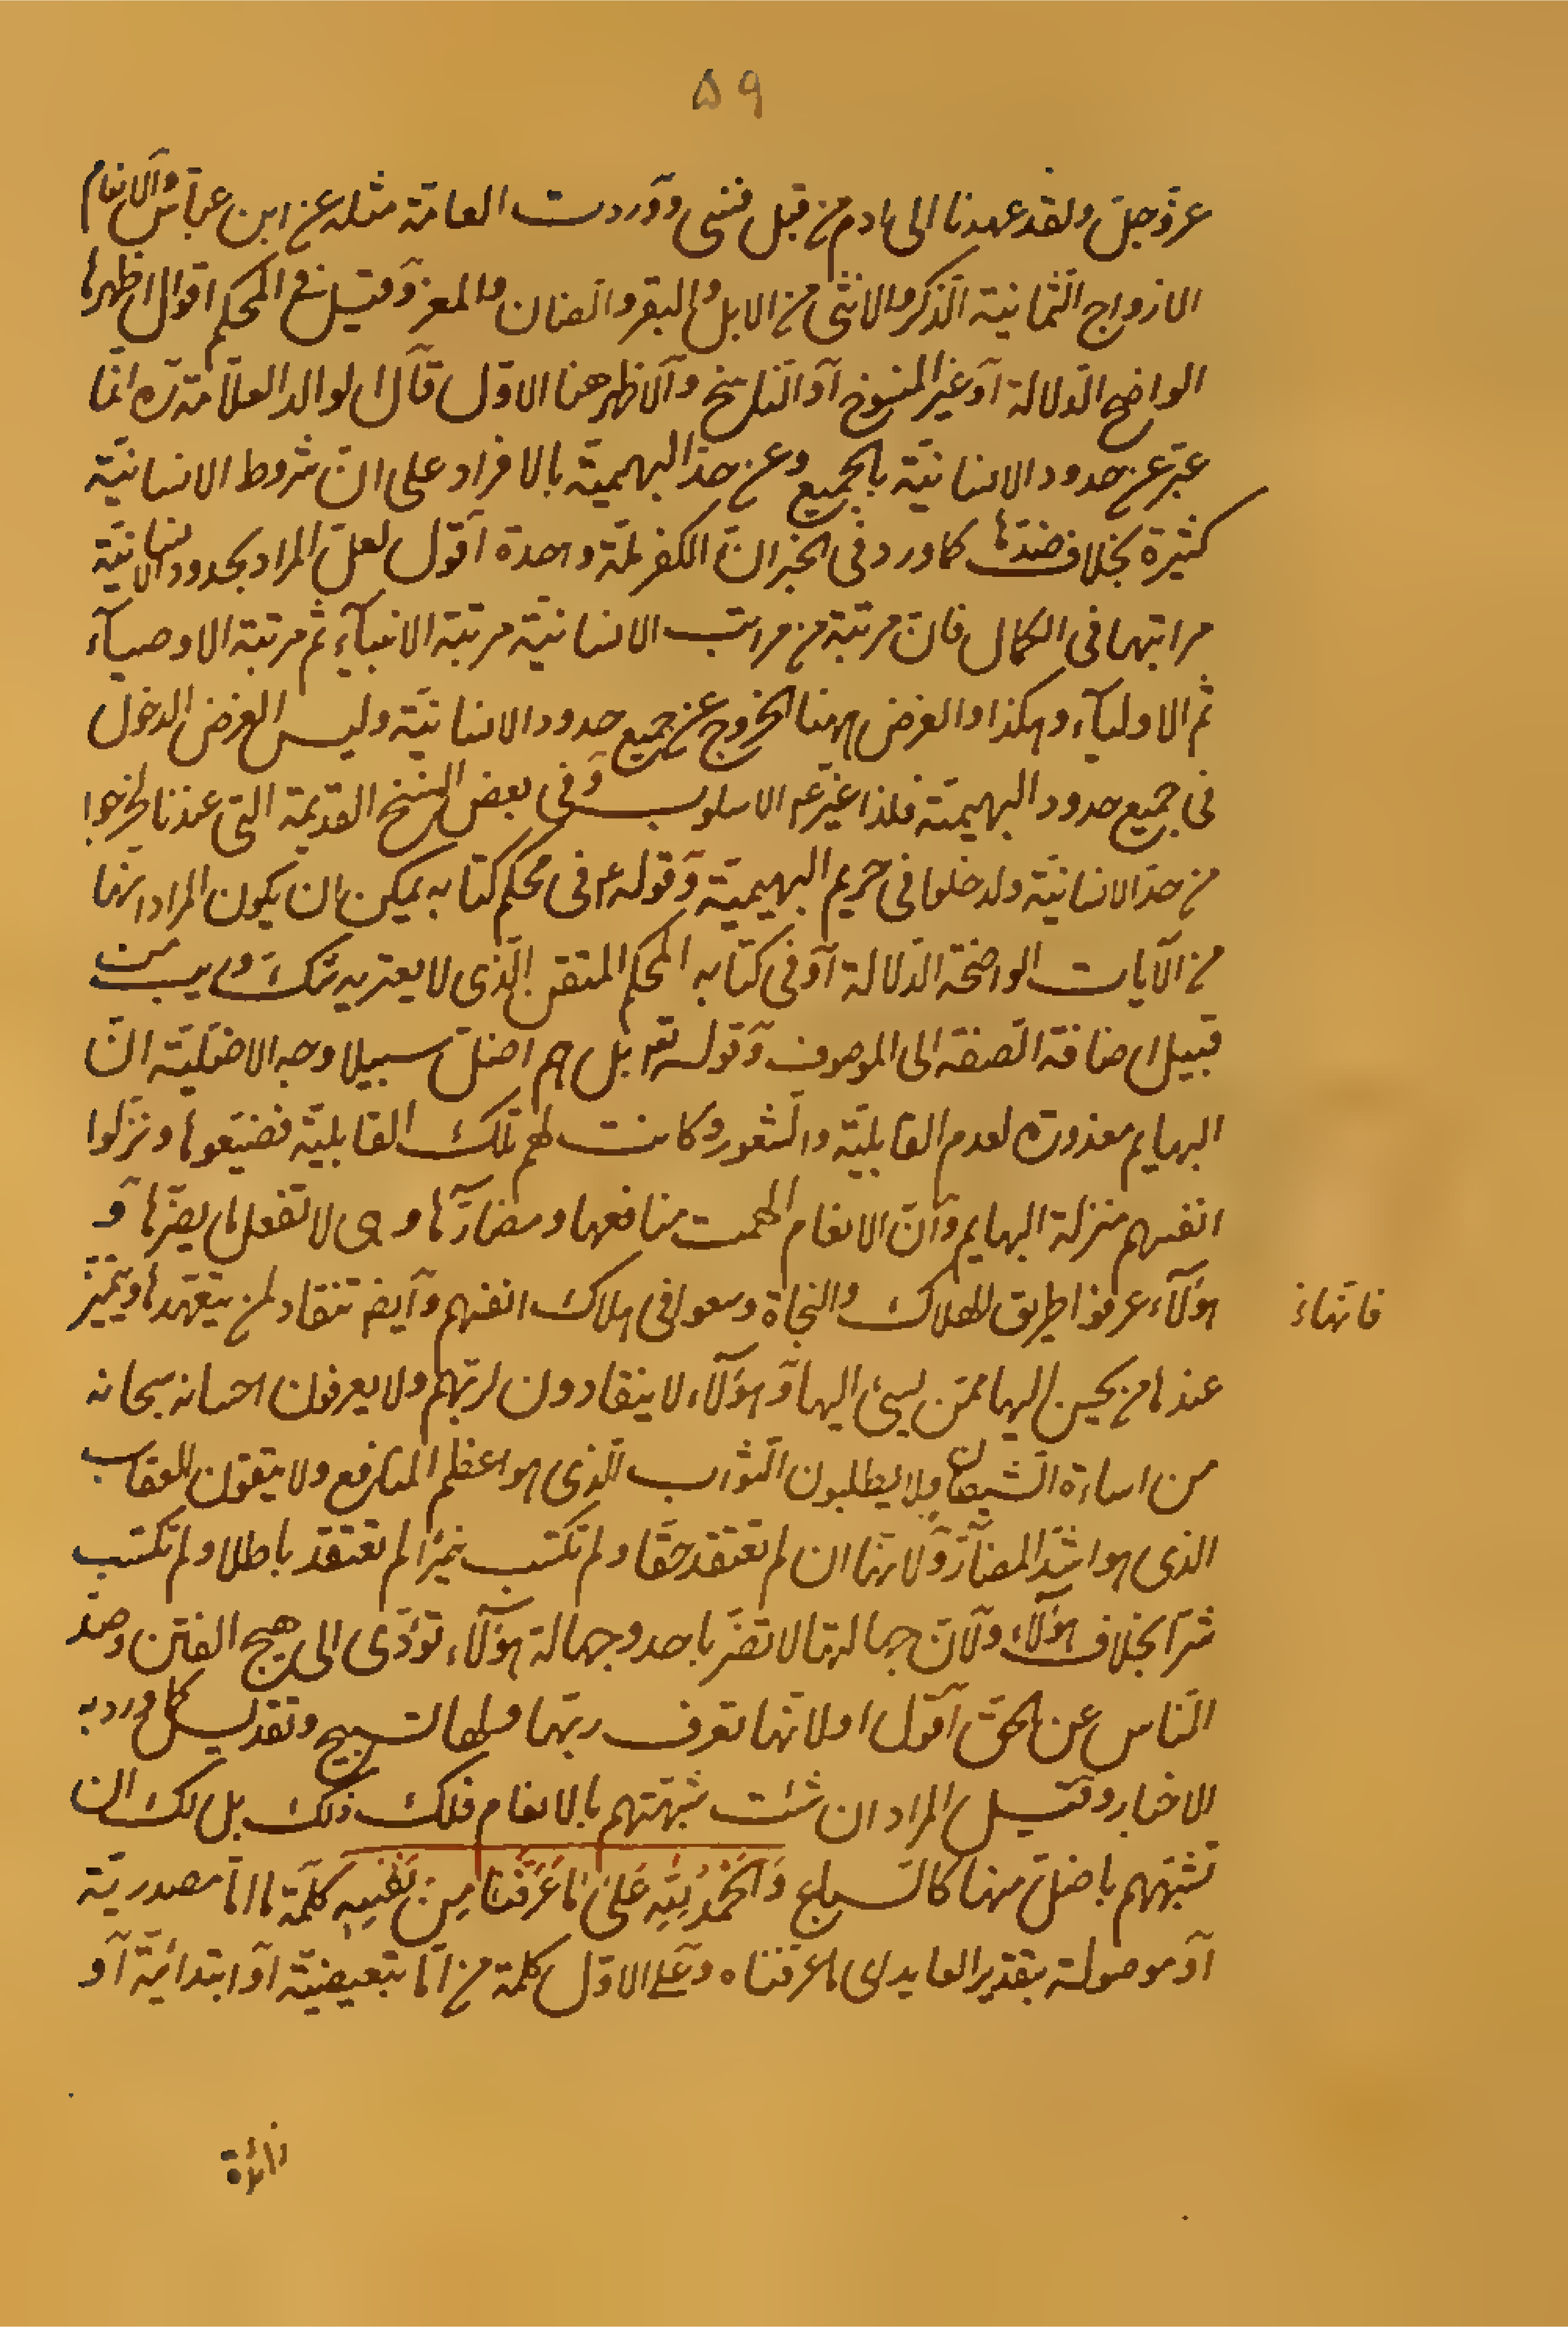 ۵۹
عز وجل ولقد عهدنا الى ادم من قبل فنسى ووردت العامة مثله عن ابن عباس والانعام
الازواج الثمانية الذكر والانثى من الابل والبقر والضان والمعز وقيل في المحكم اقوال اظهرها
الواضح الدلالة او غير المنسوخ او الناسخ والاظهر هنا الاول قال الوالد العلامة ره انما
عبر عن حدود الانسانية بالجميع وعن حد البهيمية بالافراد على ان شروط الانسانية
كثيرة بخلاف ضدها كما ورد فى الخبر ان الكفر ملة واحدة اقول لعل المراد بحدود الانسانية
مراتبها فى الكمال فان مرتبة من مراتب الانسانية مرتبة الانبياء ثم مرتبة الاوصياء
ثم الاولياء وهكذا والغرض ههنا الخروج عن جميع حدود الانسانية وليس الغرض الدخول
فى جميع حدود البهيمية فلذا غير ع الاسلوب وفى بعض النسخ القديمة التى عندنا لخرجوا
من حد الانسانية ولدخلوا فى حريم البهيمية وقوله ع فى محكم كتابه يمكن ان يكون المراد انها
من الآيات الواضحة الدلالة او فى كتابه المحكم المتقن الذى لا يعتريه شك وريب من
قبيل اضافة الصفة الى الموصوف وقوله تعر بل هم اضل سبيلا وجه الاضلية ان
البهايم معذورة لعدم القابلية والشعور وكانت لهم تلك القابلية فضيعوها ونزلوا
انفسهم منزلة البهايم وان الانعام الهمت منافعها ومضارها وهى لا تفعل ما يضرها و
هؤلاء عرفوا طريق الهلاك والنجاة وسعوا فى هلاك انفسهم وايضا تنقاد لمن يتعهدها ويتميز
فانهاء
عندها من يحسن اليها ممن يسئ اليها وهؤلاء لا ينقادون لربهم ولا يعرفون احسانه سبحانه
من اساءة الشيطان ولا يطلبون الثواب الذى هو اعظم المنافع ولا يتقون العقاب
الذى هو اشد المضار ولانها ان لم تعتقد حقا ولم تكتسب خيرا لم تعتقد باطلا ولم تكتسب
شرا بخلاف هؤلاء ولان جهالتها لا تضر باحد وجهالة هؤلاء تؤدى الى هيج الفتن وصد
الناس عن الحق اقول اولانها تعرف ربها ولها تسبيح وتقديس كما ورد به
الاخبار وقيل المراد ان شئت شبهتهم بالانعام فلك ذلك بل لك ان
تشبههم باضل منها كالسباع وَالْحَمْدُ لِلّٰهِ عَلىٰ مَا عَرَّفَنَا مِنْ نَفْسِهِ كلمة ما اما مصدرية
او موصولة بتقدير العايد اى ما عرفناه وعلى الاول كلمة من اما تبعيضية او ابتدائية او
زائدة